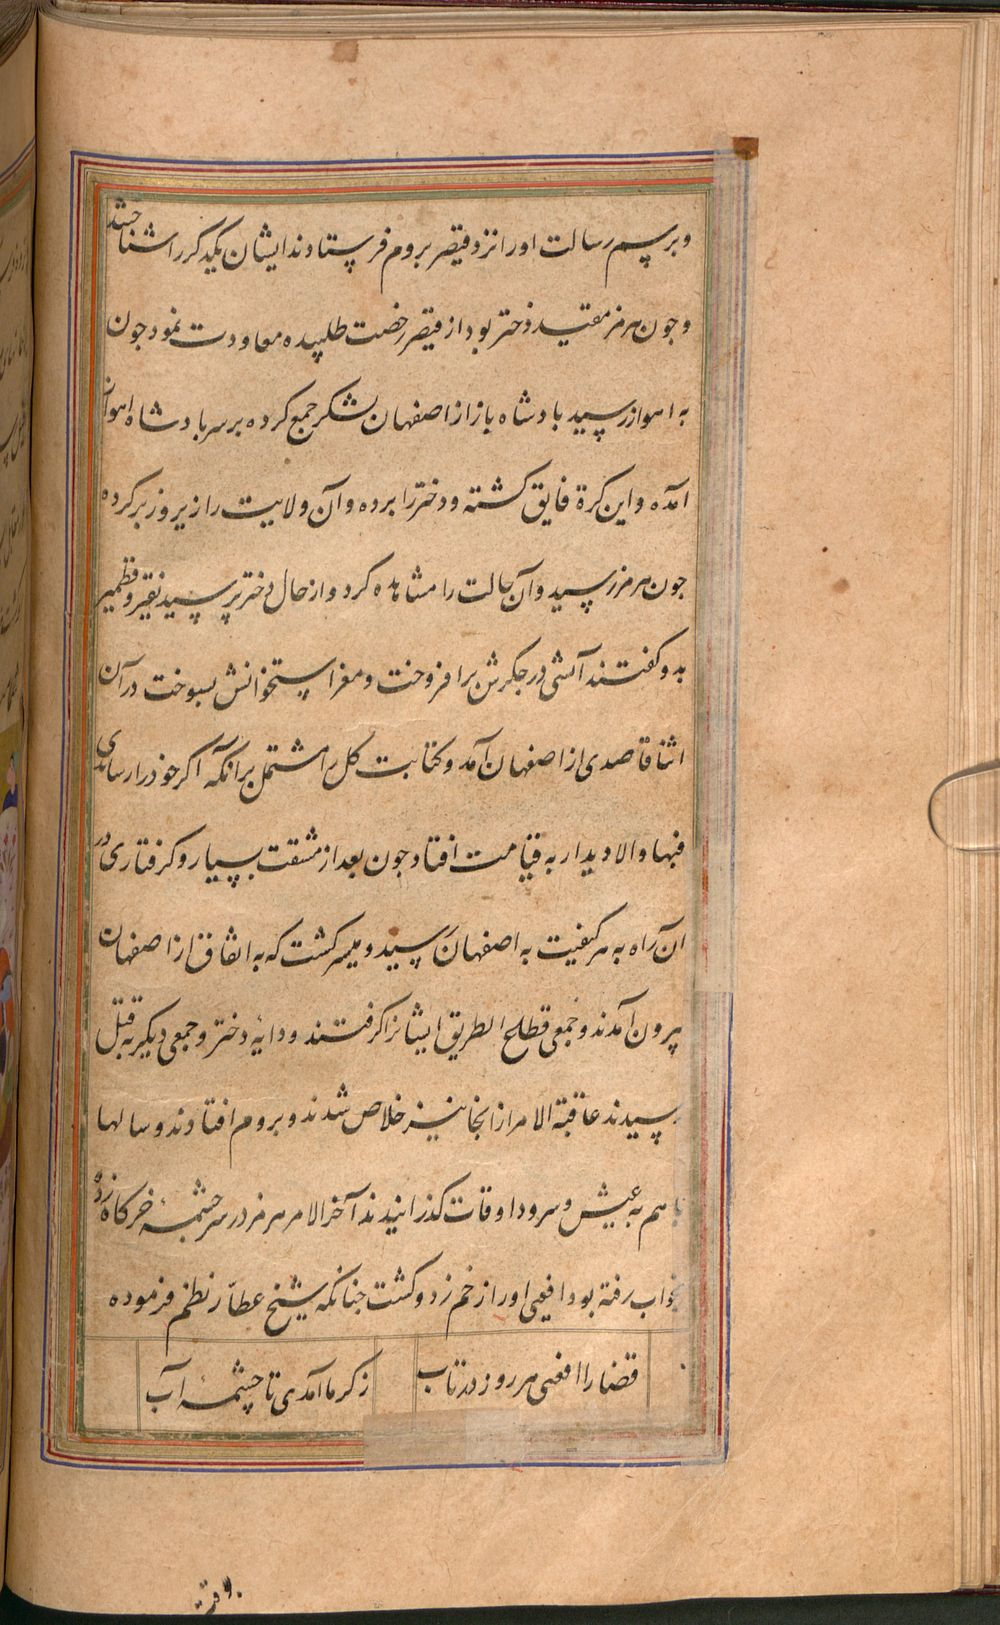 و برسم رسالت او را نزد قیصر بروم فرستادند ایشان یکدیکر را شناختند
و جون هرمز مقید دختر بود از قیصر رخصت طلبیده معاودت نمود جون
به اهواز رسید بادشاه باز از اصفهان لشکر جمع کرده بر سر بادشاه اهواز
امده و این کرة فایق کشته و دختر را برده و آن ولایت را زیر و زبر کرده
جون هرمز رسید و آن حالت را مشاهده کرد و از حال دختر پرسید نقیر و قطمیر
بدو کفتند آتشی در جکرش برافروخت و مغز استخوانش بسوخت در آن
اثنا قاصدی از اصفهان آمد و کتابت کل را مشتمل بر آنکه اکر خود را رساندی
فبها والا دیدار به قیامت افتاد جون بعد از مشقت بسیار و کرفتاری در
ان راه به هر کیفیت به اصفهان رسید و میسر کشت که به اتفاق از اصفهان
بیرون آمدند و جمعی قطاع الطریق ایشانرا کرفتند و دایهٔ دختر و جمعی دیکر به قتل
رسیدند عاقبة الامر از انجا نیز خلاص شدند و بروم افتادند و سالها
با هم به عیش و سرود اوقات کذرانیدند آخر الامر هرمز در سر چشمهٔ خرکاه زده
بخواب رفته بود افعی او را زخم زد و کشت جنانکه شیخ عطّار نظم فرموده
قضا را افعی هر روز در تاب زکرما آمدی تا چشمهٔ آب